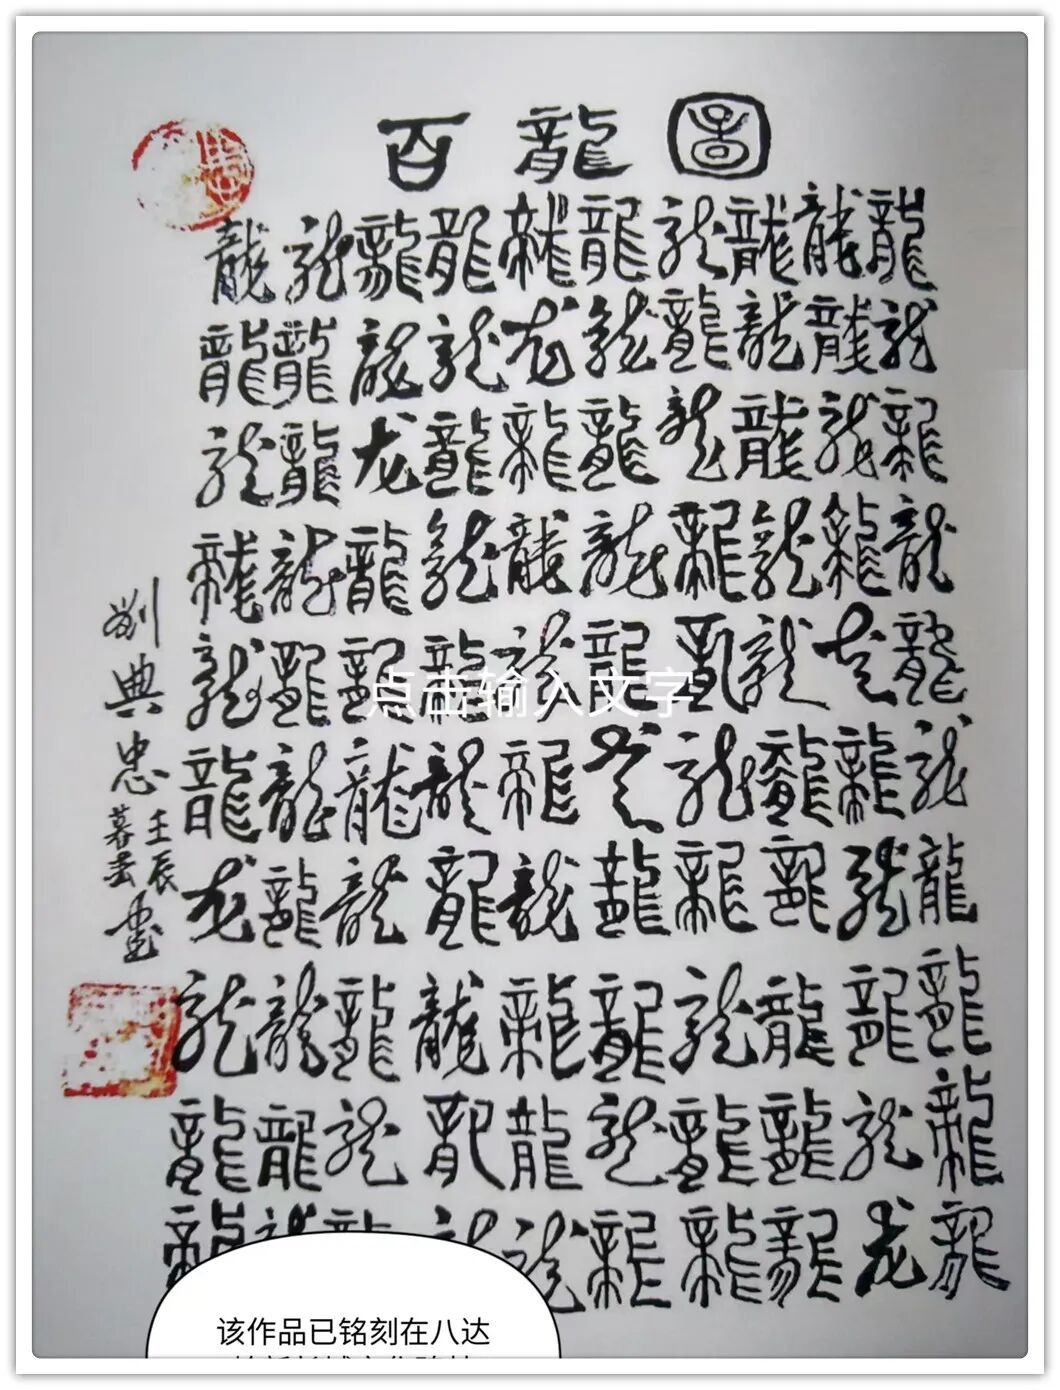 百龍圖
龍龍龍龍龍龍龍龍龍龍
龍龍龍龍龙龍龍龍龍龍
龍龍龙龍龍龍龍龍龍龍
龍龍龍龍龍龍龍龍龍龍
龍龍龍龍龍龍龍龍龙龍
龍龍龍龍龍龙龍龍龍龍
龙龍龍龍龍龍龍龍龍龍
龍龍龍龍龍龍龍龍龍龍
龍龍龍龍龍龍龍龍龍龍
龍龍龍龍龍龍龍龍龙龍
劉典忠
壬辰
暮春書
点击输入文字
该作品已铭刻在八达